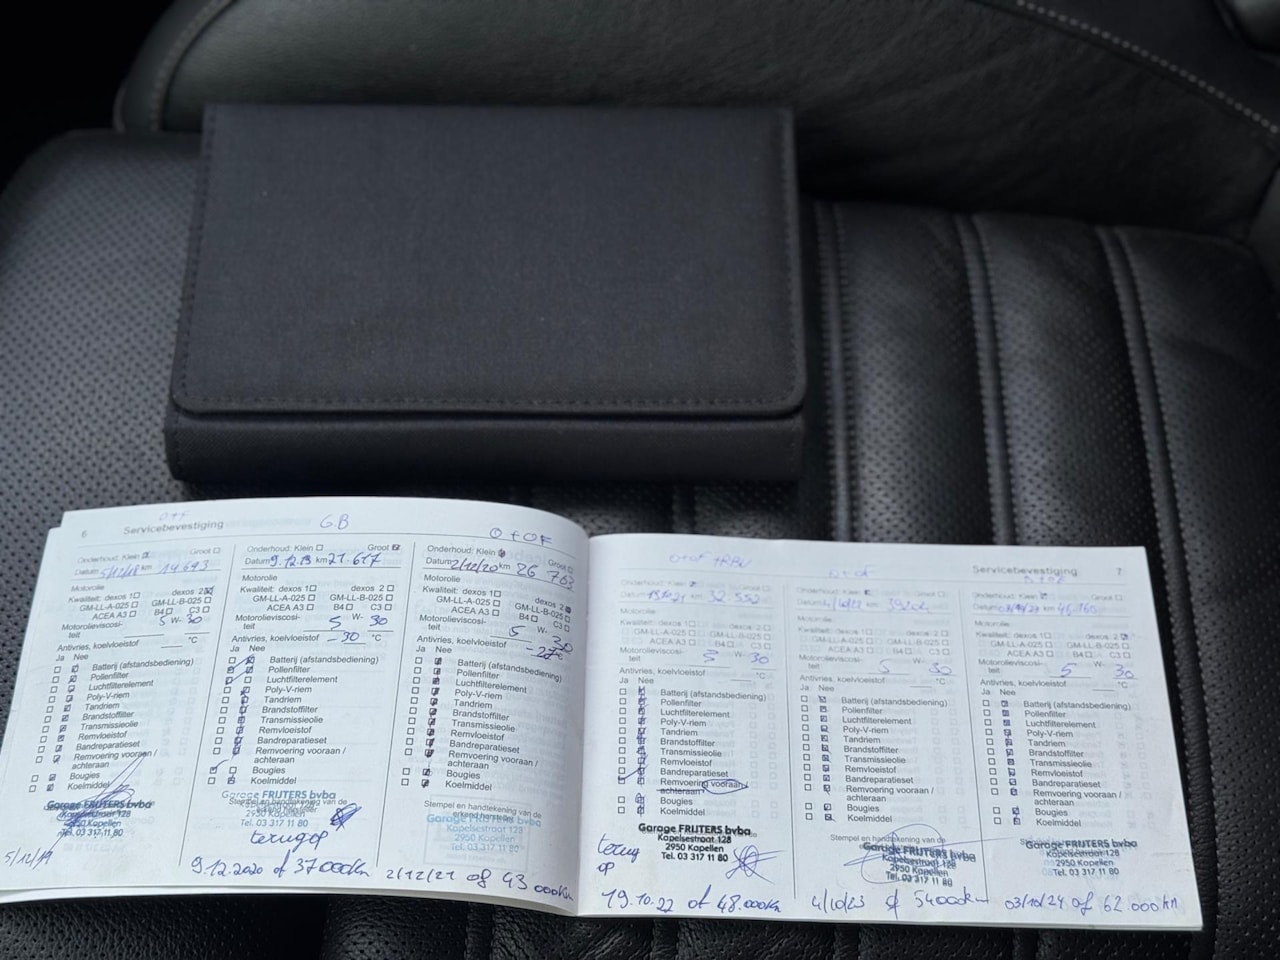 6
Servicebevestiging
G.B
O + OF
Onderhoud: Klein Groot
Datum 5/12/18 km 14 693
Motorolie
Kwaliteit: dexos 1 dexos 2
GM-LL-A-025 GM-LL-B-025
ACEA A3 B4 C3
Motorolieviscosi-
teit 5 W- 30
Antivries, koelvloeistof °C
Ja Nee
Batterij (afstandsbediening)
Pollenfilter
Luchtfilterelement
Poly-V-riem
Tandriem
Brandstoffilter
Transmissieolie
Remvloeistof
Bandreparatieset
Remvoering vooraan /
achteraan
Bougies
Koelmiddel
Garage FRIJTERS bvba
Kapelsestraat 128
2950 Kapellen
Tel. 03 317 11 80
5/12/19
Onderhoud: Klein Groot
Datum 9.12.19 km 21.677
Motorolie
Kwaliteit: dexos 1 dexos 2
GM-LL-A-025 GM-LL-B-025
ACEA A3 B4 C3
Motorolieviscosi-
teit 5 W- 30
Antivries, koelvloeistof -30 °C
Ja Nee
Batterij (afstandsbediening)
Pollenfilter
Luchtfilterelement
Poly-V-riem
Tandriem
Brandstoffilter
Transmissieolie
Remvloeistof
Bandreparatieset
Remvoering vooraan /
achteraan
Bougies
Koelmiddel
Garage FRIJTERS bvba
Stempel en handtekening van de
erkend hersteller
2950 Kapellen
Tel. 03 317 11 80
terug op
9.12.2020 of 37000km
Onderhoud: Klein Groot
Datum 2/12/20 km 26 763
Motorolie
Kwaliteit: dexos 1 dexos 2
GM-LL-A-025 GM-LL-B-025
ACEA A3 B4 C3
Motorolieviscosi-
teit 5 W- 30
Antivries, koelvloeistof -27 °C
Ja Nee
Batterij (afstandsbediening)
Pollenfilter
Luchtfilterelement
Poly-V-riem
Tandriem
Brandstoffilter
Transmissieolie
Remvloeistof
Bandreparatieset
Remvoering vooraan /
achteraan
Bougies
Koelmiddel
Stempel en handtekening van de
erkend hersteller
Garage FRIJTERS bvba
Kapelsestraat 128
2950 Kapellen
Tel. 03 317 11 80
2/12/21 of 43 000km
Servicebevestiging
7
Onderhoud: Klein Groot
Datum km 32.552
Motorolie
Kwaliteit: dexos 1 dexos 2
GM-LL-A-025 GM-LL-B-025
ACEA A3 B4 C3
Motorolieviscosi-
teit 5 30
Antivries, koelvloeistof °C
Ja Nee
Batterij (afstandsbediening)
Pollenfilter
Luchtfilterelement
Poly-V-riem
Tandriem
Brandstoffilter
Transmissieolie
Remvloeistof
Bandreparatieset
Remvoering vooraan/
achteraan
Bougies
Koelmiddel
Garage FRIJTERS bvba
Kapelsestraat 128
2950 Kapellen
Tel. 03 317 11 80
terug
op
19.10.22 of 48.000km
Onderhoud: Klein Groot
Datum km
Motorolie
Kwaliteit: dexos 1 dexos 2
GM-LL-A-025 GM-LL-B-025
ACEA A3 B4 C3
Motorolieviscosi-
teit 5 30
Antivries, koelvloeistof °C
Ja Nee
Batterij (afstandsbediening)
Pollenfilter
Luchtfilterelement
Poly-V-riem
Tandriem
Brandstoffilter
Transmissieolie
Remvloeistof
Bandreparatieset
Remvoering vooraan /
achteraan
Bougies
Koelmiddel
Stempel en handtekening van de
Garage FRIJTERS bvba
Kapelsestraat 128
2950 Kapellen
Tel. 03 317 11 80
4/10/23 of 54000km
Onderhoud: Klein Groot
Datum km 46.160
Motorolie
Kwaliteit: dexos 1 dexos 2
GM-LL-A-025 GM-LL-B-025
ACEA A3 B4 C3
Motorolieviscosi-
teit 5 30
Antivries, koelvloeistof °C
Ja Nee
Batterij (afstandsbediening)
Pollenfilter
Luchtfilterelement
Poly-V-riem
Tandriem
Brandstoffilter
Transmissieolie
Remvloeistof
Bandreparatieset
Remvoering vooraan /
achteraan
Bougies
Koelmiddel
Garage FRIJTERS bvba
Kapelsestraat 128
2950 Kapellen
Tel. 03 317 11 80
03/10/24 of 62.000km